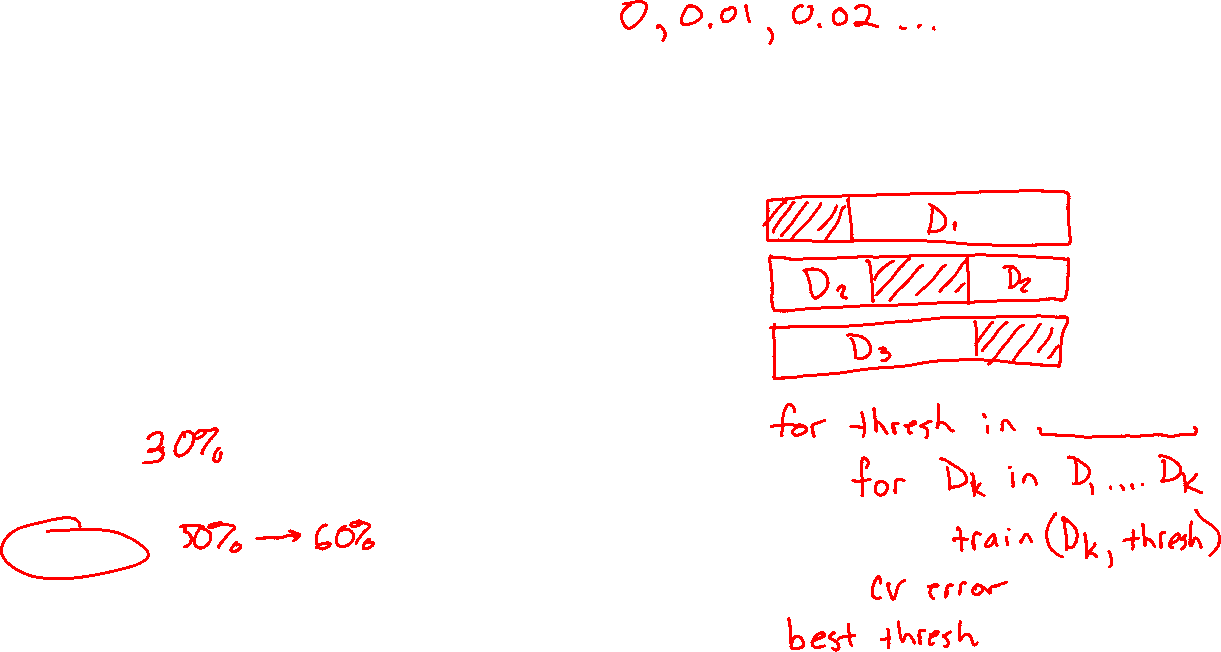 0, 0.01, 0.02 ...
D1
D2 D2
D3
for thresh in ________
30%
for Dk in D1 .... DK
50% → 60%
train(Dk, thresh)
cv error
best thresh